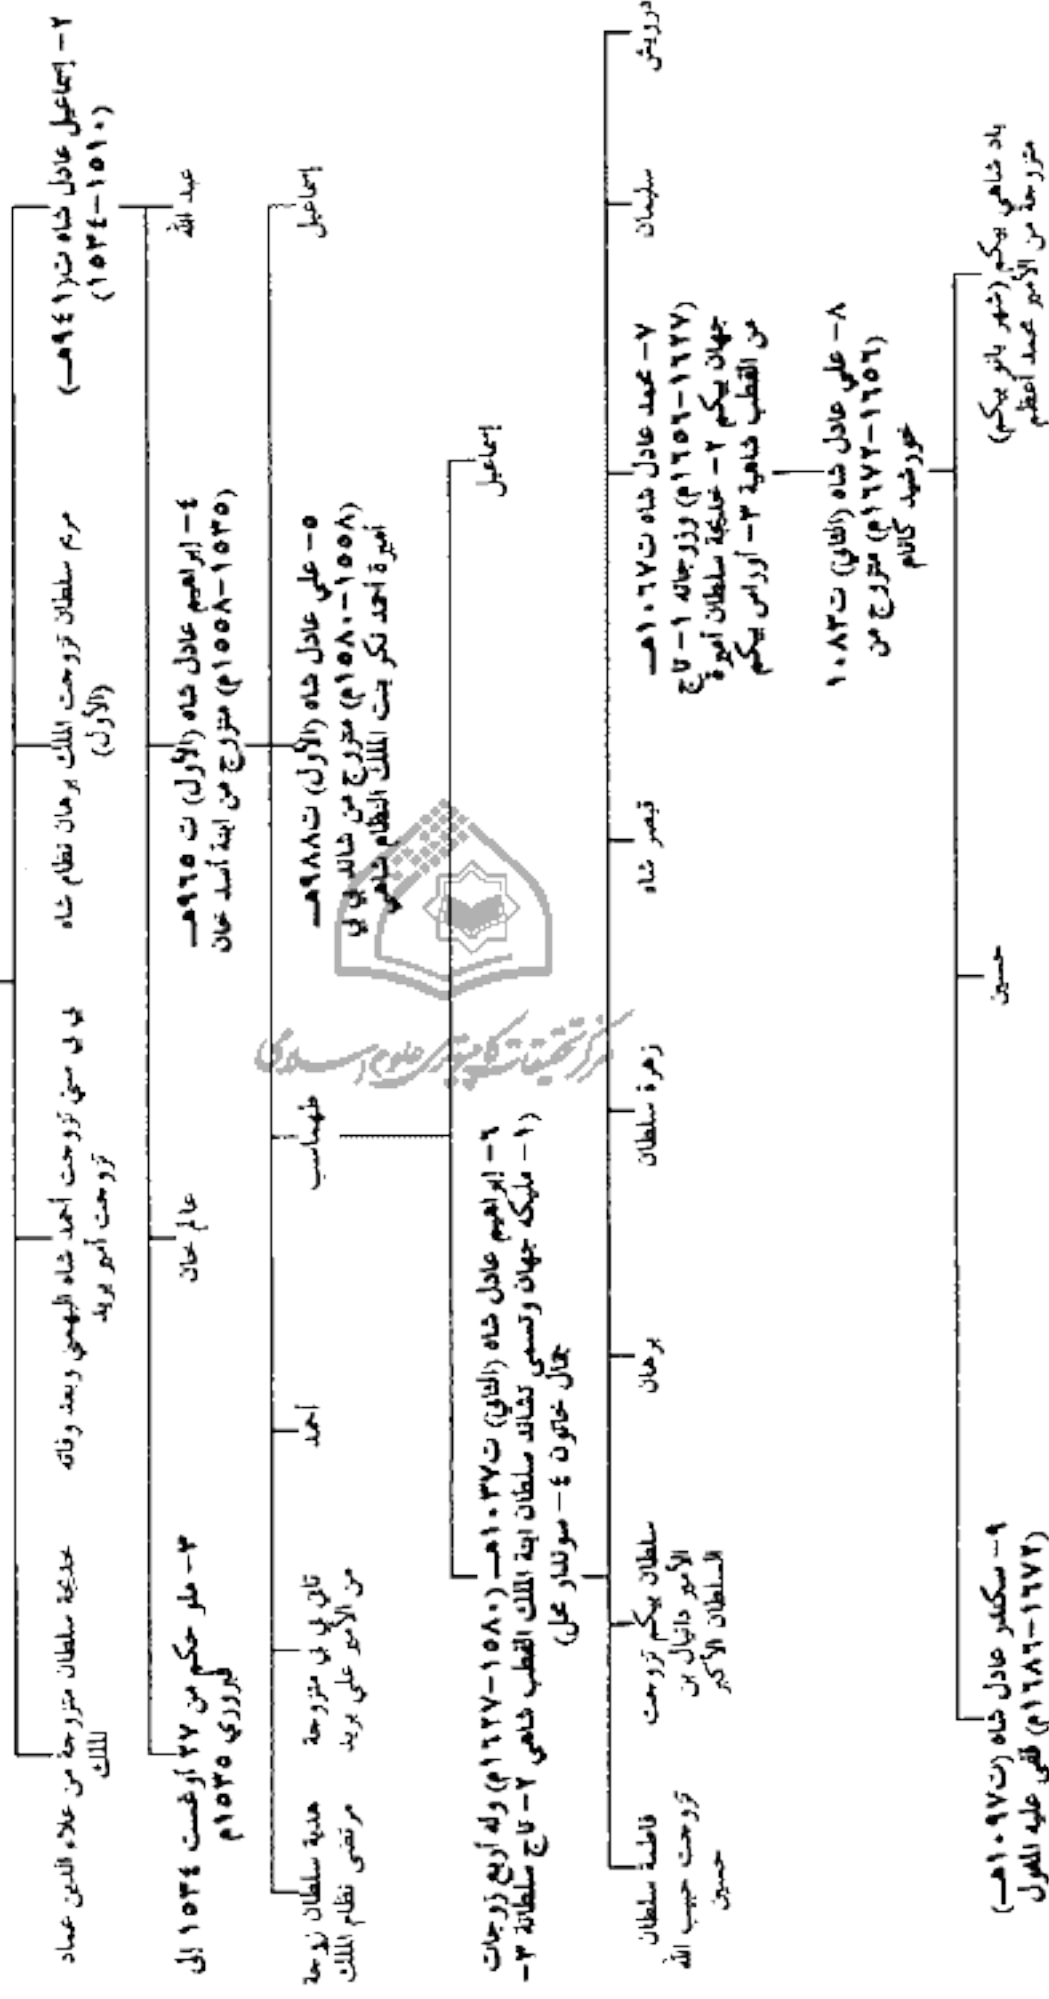 ٢- إسماعيل عادل شاه ت(٩٤١هـ)
(١٥١٠-١٥٣٤)
مريم سلطان تزوجت الملك برهان نظام شاه
(الأول)
بي بي ستي تزوجت أحمد شاه البهمني وبعد وفاته
تزوجت أمير بريد
خديجة سلطان متزوجة من علاء الدين عماد
الملك
عبد الله
٤- إبراهيم عادل شاه (الأول) ت ٩٦٥هـ
(١٥٣٥-١٥٥٨م) متزوج من ابنة أسد خان
عالم خان
٣- ملو حكم من ٢٧ أوغست ١٥٣٤ إلى
فبروري ١٥٣٥م
إسماعيل
٥- علي عادل شاه (الأول) ت٩٨٨هـ
(١٥٥٨-١٥٨٠م) متزوج من شاند بي بي
أميرة أحمد نكر بنت الملك النظام شاهي
طهماسب
أحمد
تاني بي بي متزوجة
من الأمير علي بريد
هدية سلطان زوجة
مرتضى نظام الملك
مركز تحقيقات كامپيوتري علوم اسلامي
إسماعيل
٦- إبراهيم عادل شاه (الثاني) ت١٠٣٧هـ (١٥٨٠-١٦٢٧م) وله أربع زوجات
(١- مليكه جهان وتسمى تشاند سلطان ابنة الملك القطب شاهي ٢- تاج سلطانة ٣-
جمال خاتون ٤- سوندار محل)
درويش
سليمان
٧- محمد عادل شاه ت١٠٦٧هـ
(١٦٢٧-١٦٥٦م) وزوجاته ١- تاج
جهان بيكم ٢- خديجة سلطان أميرة
من القطب شاهية ٣- أوراس بيكم
قيصر شاه
زهرة سلطان
برهان
سلطان بيكم تزوجت
الأمير دانيال بن
السلطان الأكبر
فاطمة سلطان
تزوجت حبيب الله
حسين
٨- علي عادل شاه (الثاني) ت١٠٨٣
(١٦٥٦-١٦٧٢م) متزوج من
خورشيد كانام
باد شاهي بيكم (شهر بانو بيكم)
متزوجة من الأمير محمد أعظم
حسين
٩- سكندر عادل شاه (ت١٠٩٧هـ)
(١٦٧٢-١٦٨٦م) قضى عليه المغول